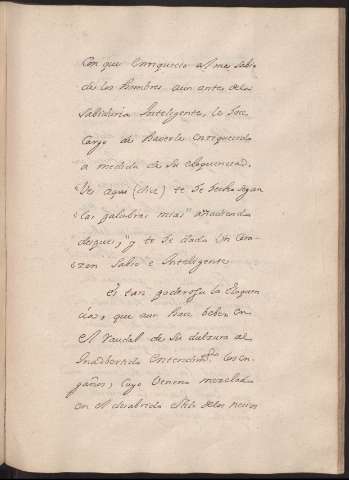 Con que enriquecio al mas Sabio
de los hombres aun antes dela
Sabiduria Inteligente, le hace
Cargo de haverle enriquecido
a medida de su eloquencia.
"Ves aqui (dice) te he hecho segun
"las palabras mias" añadiendo
despues, "y te he dado un Cora-
"zon Sabio e Inteligente
Es tan poderosa la Eloquen
cia, que aun hace beber en
el raudal de su dulzura al
Inadvertido entendimto. los en-
gaños, Cuyo Veneno mezclado
en el desabrido estilo delos necios